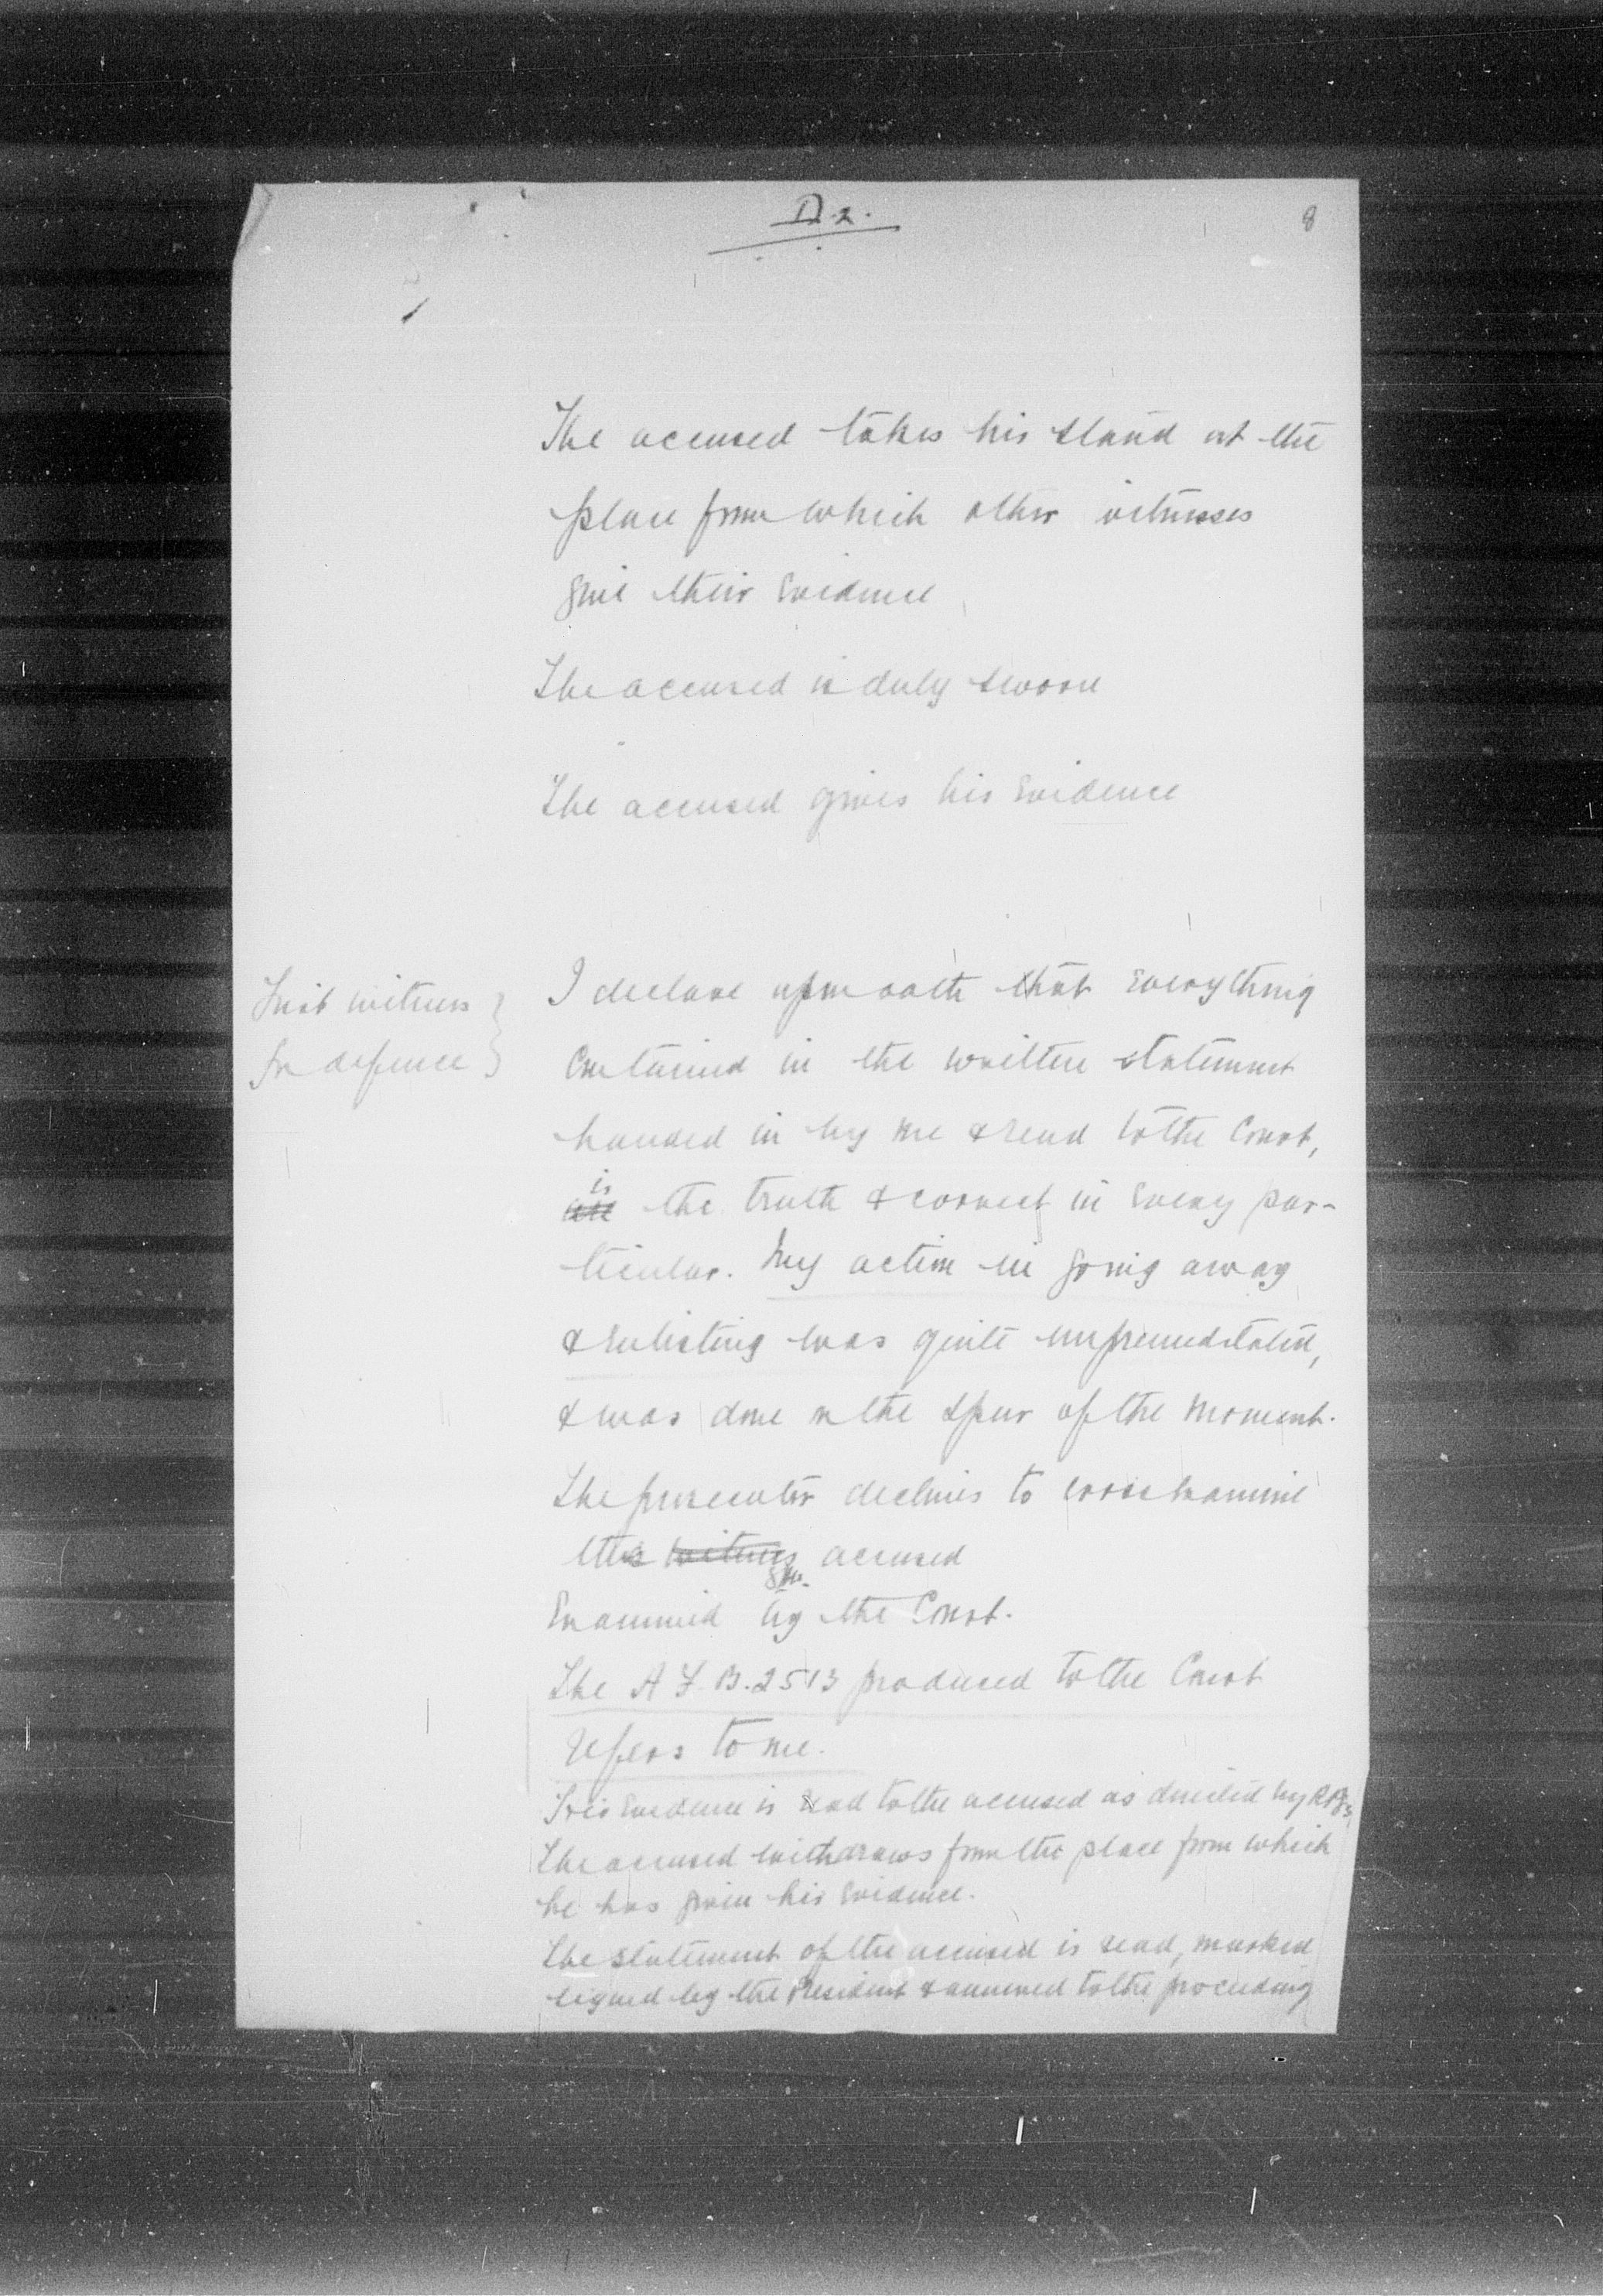 D.2.
8
The accused takes his stand at the
place from which other witnesses
give their evidence
The accused is duly sworn
The accused gives his evidence
First witness
for defence
I declare upon oath that everything
contained in the written statement
handed in by me & read to the Court,
is
are the truth & correct in every par-
ticular. My action in going away
& enlisting was quite unpremeditated,
& was done on the spur of the moment.
The prosecutor declines to cross examine
the witness accused
Examined by the Court.
The A.F.B. 2513 produced to the Court
refers to me.
His evidence is read to the accused as directed by
The accused withdraws from the place from which
he has given his evidence.
The statement of the accused is read, marked
signed by the President & annexed to the proceeding